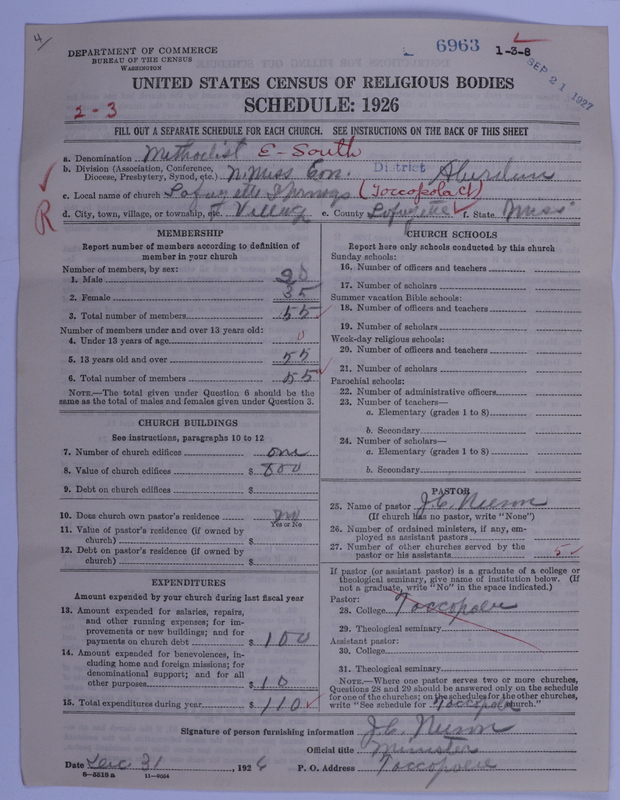 4/
DEPARTMENT OF COMMERCE
BUREAU OF THE CENSUS
WASHINGTON
6963 1-3-8
SEP 21 1927
UNITED STATES CENSUS OF RELIGIOUS BODIES
2-3 SCHEDULE: 1926
FILL OUT A SEPARATE SCHEDULE FOR EACH CHURCH. SEE INSTRUCTIONS ON THE BACK OF THIS SHEET
a. Denomination Methodist E-South
b. Division (Association, Conference, Diocese, Presbytery, Synod, etc.) N. Miss Con. District Aberdeen
c. Local name of church Lafayette Springs (Toccopola Ct)
R
d. City, town, village, or township, etc. Village e. County Lafayette f. State Miss
MEMBERSHIP
Report number of members according to definition of
member in your church
Number of members, by sex:
1. Male 20
2. Female 35
3. Total number of members 55
Number of members under and over 13 years old:
4. Under 13 years of age 0
5. 13 years old and over 55
6. Total number of members 55
NOTE.—The total given under Question 6 should be
same as the total of males and females given under Question 3.
CHURCH BUILDINGS
See instructions, paragraphs 10 to 12
7. Number of church edifices one
8. Value of church edifices $ 800
9. Debt on church edifices $
10. Does church own pastor's residence no
Yes or No
11. Value of pastor's residence (if owned by
church) $
12. Debt on pastor's residence (if owned by
church) $
EXPENDITURES
Amount expended by your church during last fiscal year
13. Amount expended for salaries, repairs,
and other running expenses; for im-
provements or new buildings; and for
payments on church debt $ 100
14. Amount expended for benevolences, in-
cluding home and foreign missions; for
denominational support; and for all
other purposes $ 10
15. Total expenditures during year $ 110
CHURCH SCHOOLS
Report here only schools conducted by this church
Sunday schools:
16. Number of officers and teachers
17. Number of scholars
Summer vacation Bible schools:
18. Number of officers and teachers
19. Number of scholars
Week-day religious schools:
20. Number of officers and teachers
21. Number of scholars
Parochial schools:
22. Number of administrative officers
23. Number of teachers—
a. Elementary (grades 1 to 8)
b. Secondary
24. Number of scholars—
a. Elementary (grades 1 to 8)
b. Secondary
PASTOR
25. Name of pastor J.C.
(If church has no pastor, write "None")
26. Number of ordained ministers, if any, em-
ployed as assistant pastors
27. Number of other churches served by the
pastor or his assistants 5
If pastor (or assistant pastor) is a graduate of a college or
theological seminary, give name of institution below. (If
not a graduate, write "No" in the space indicated.)
Pastor:
28. College Toccopola
29. Theological seminary
Assistant pastor:
30. College
31. Theological seminary
NOTE.—Where one pastor serves two or more churches,
Questions 28 and 29 should be answered only on the schedule
for one of the churches; on the schedules for the other churches,
write "See schedule for Toccopola church."
Signature of person furnishing information J.C.
Official title Minister
Date Dec 31, 1926 P. O. Address Toccopola
8—5518 a 11—9554